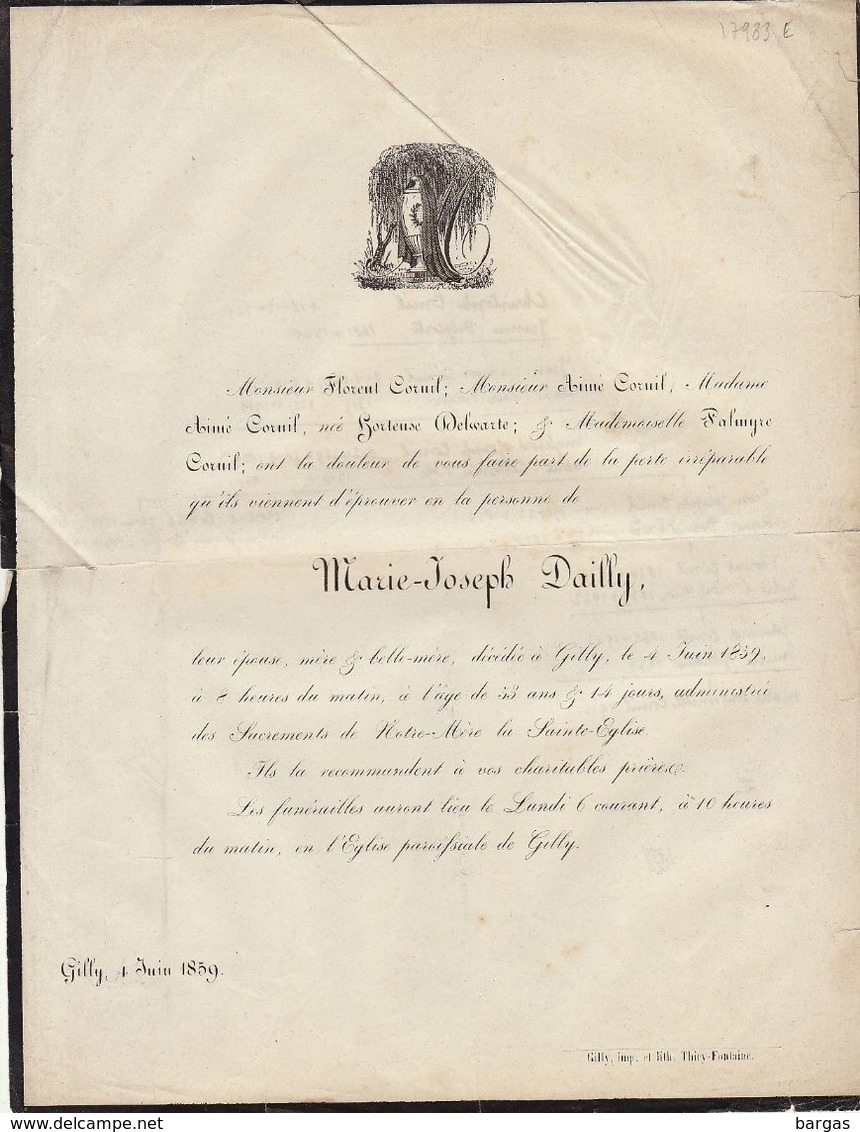 17983 E
Monsieur Florent Cornil; Monsieur Aimé Cornil, Madame
Aimé Cornil, née Hortense Delwarte; & Mademoiselle Palmyre
Cornil; ont la douleur de vous faire part de la perte irréparable
qu'ils viennent d'éprouver en la personne de
Marie-Joseph Dailly,
leur épouse, mère & belle-mère, décédée à Gilly, le 4 Juin 1859,
à heures du matin, à l'âge de 53 ans & 14 jours, administrée
des Sacrements de Notre-Mère la Sainte-Eglise.
Ils la recommandent à vos charitables prières.
Les funérailles auront lieu le Lundi 6 courant, à 10 heures
du matin, en l'Eglise paroissiale de Gilly.
Gilly, 4 Juin 1859.
Gilly, imp. et lith. Thiry-Fontaine.
bargas
www.delcampe.net